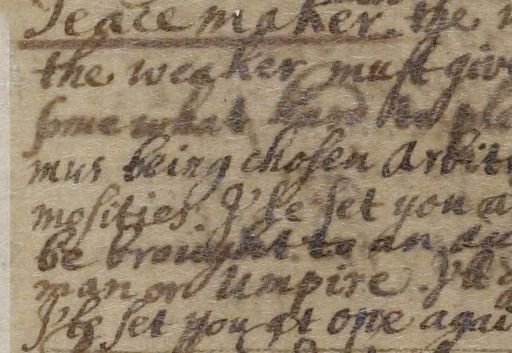 Peace maker the
the weaker must give
some what hard to
mus being chosen Arbit
mosities. I'le set you a
be brought to an
man or Umpire. I'd
I'le set you at one agai